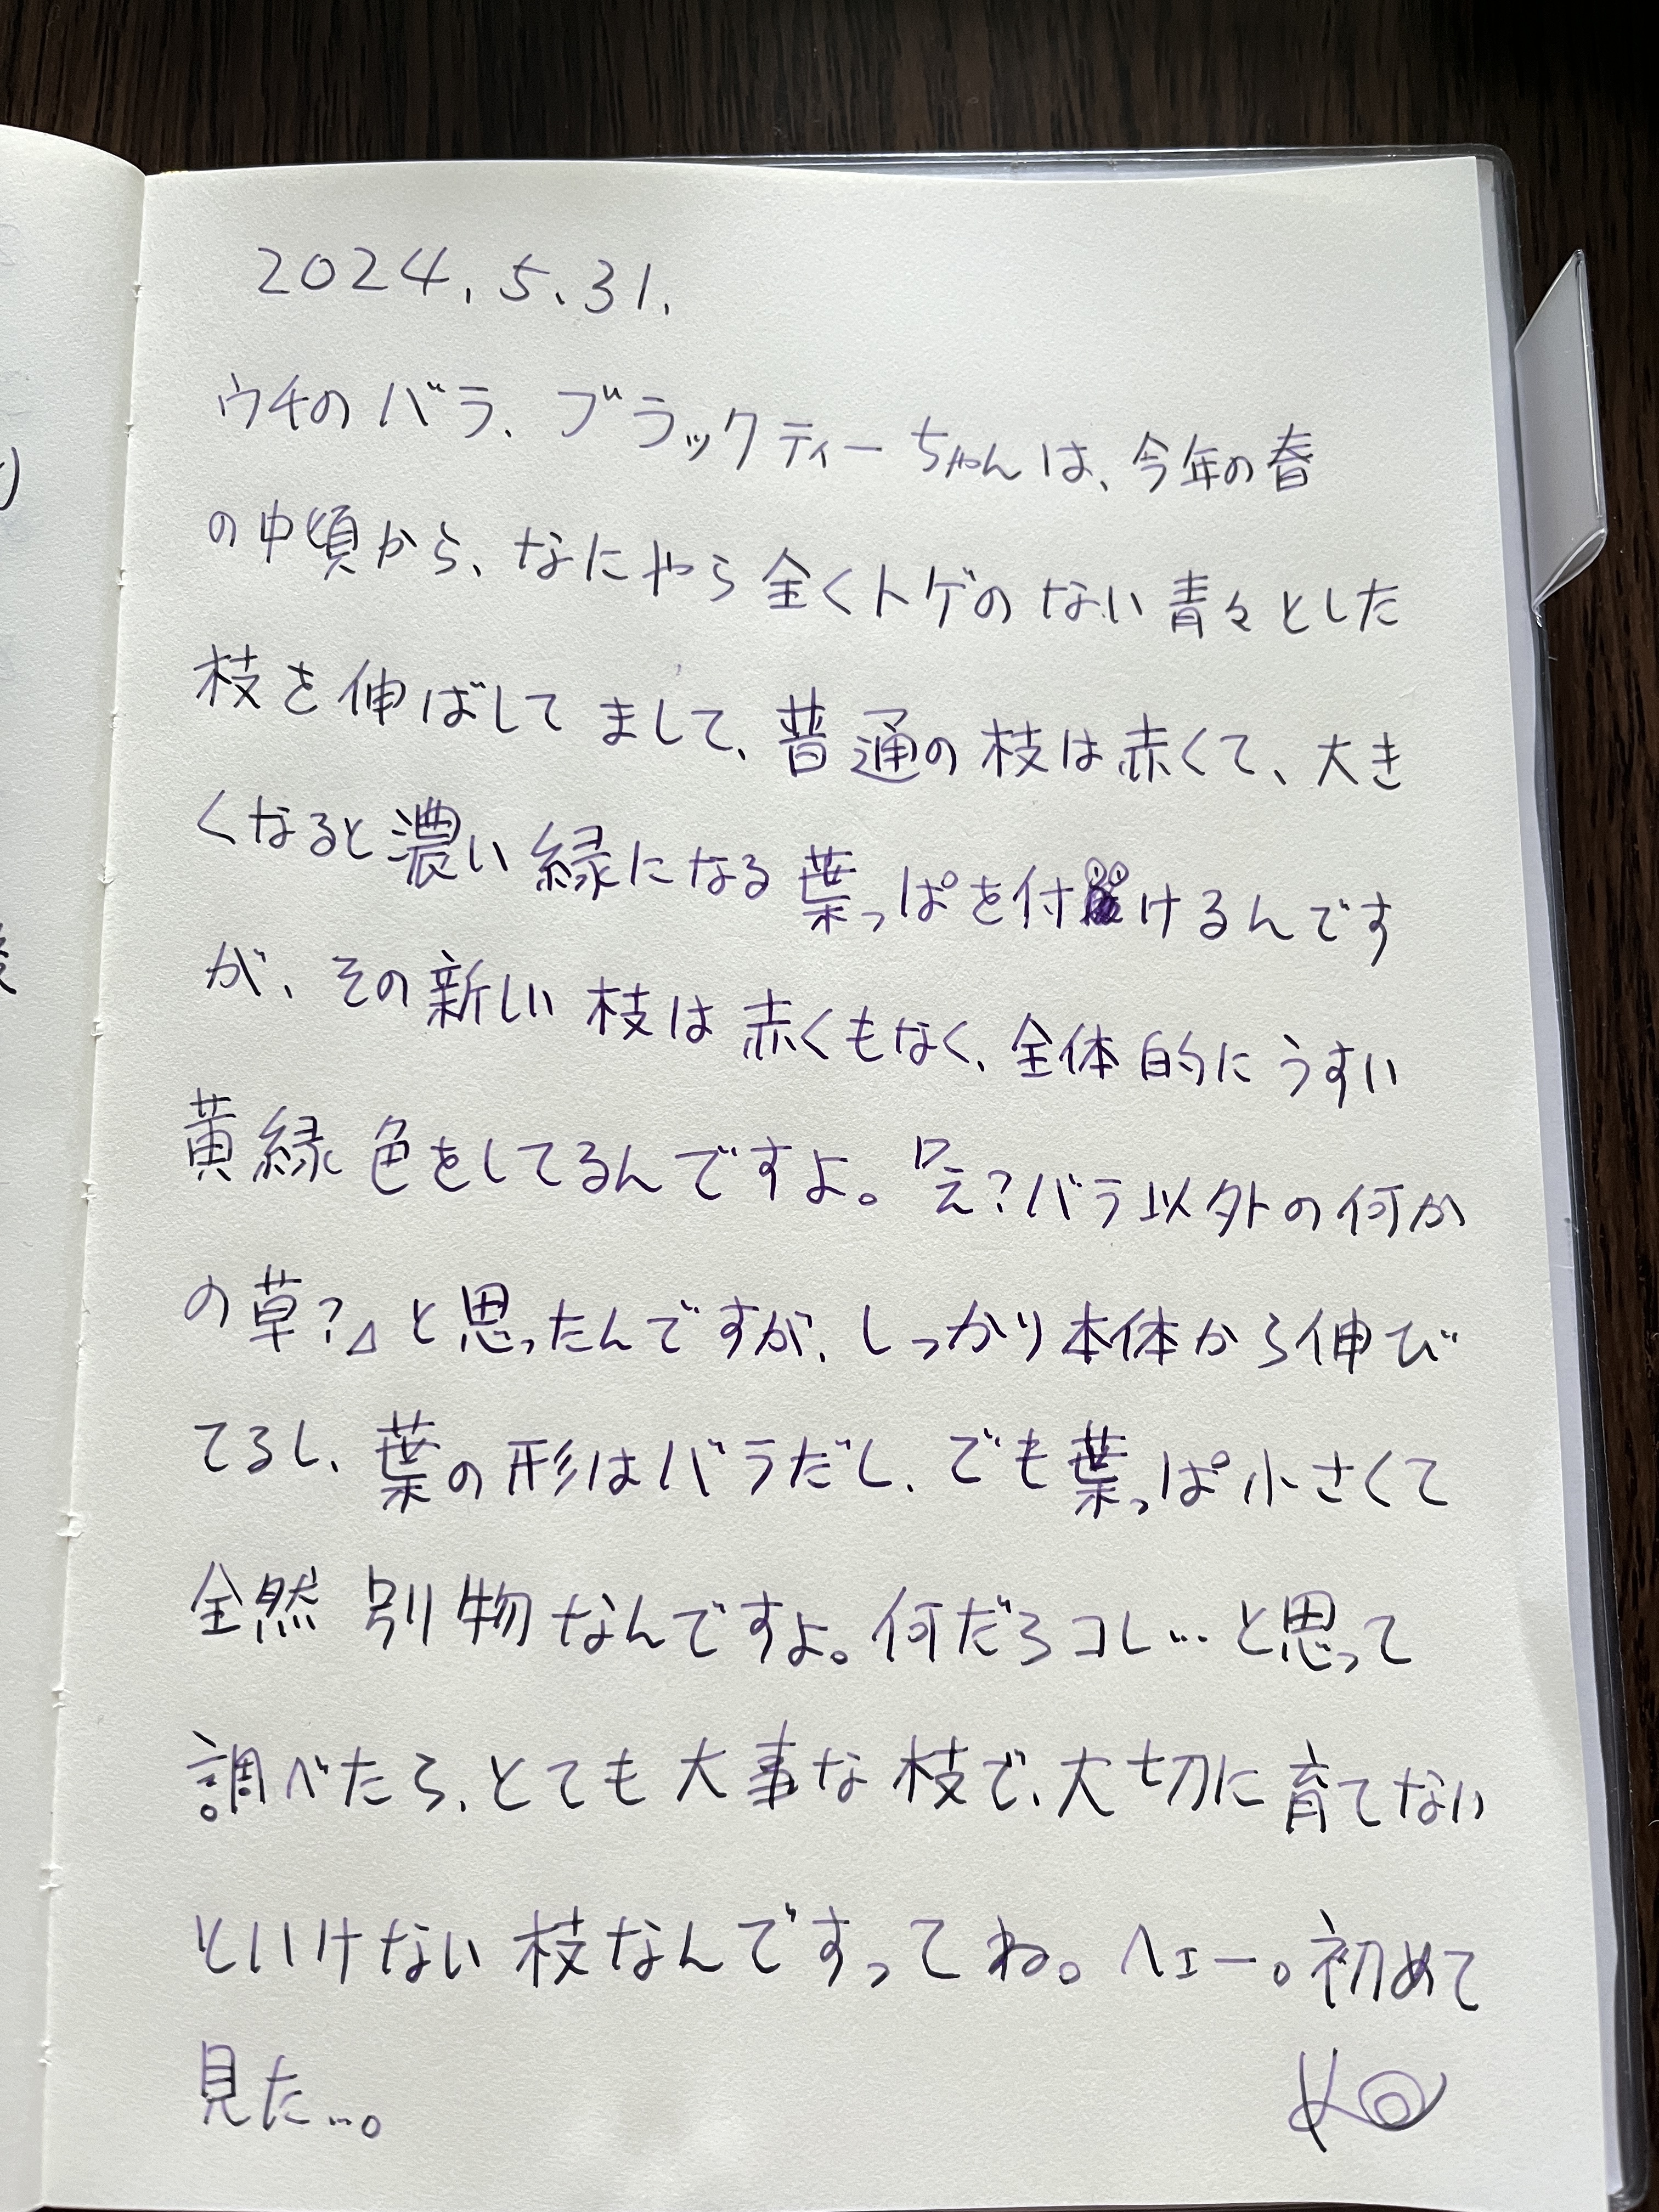 2024.5.31.
ウチのバラ、ブラックティーちゃんは、今年の春
の中頃から、なにやら全くトゲのない青々とした
枝を伸ばしてまして、普通の枝は赤くて、大き
くなると濃い緑になる葉っぱを付けるんです
が、その新しい枝は赤くもなく、全体的にうすい
黄緑色をしてるんですよ。『え?バラ以外の何か
の草?』と思ったんですが、しっかり本体から伸び
てるし、葉の形はバラだし、でも葉っぱ小さくて
全然別物なんですよ。何だろコレ…と思って
調べたら、とても大事な枝で、大切に育てない
といけない枝なんですってね。へェー。初めて
見た…。